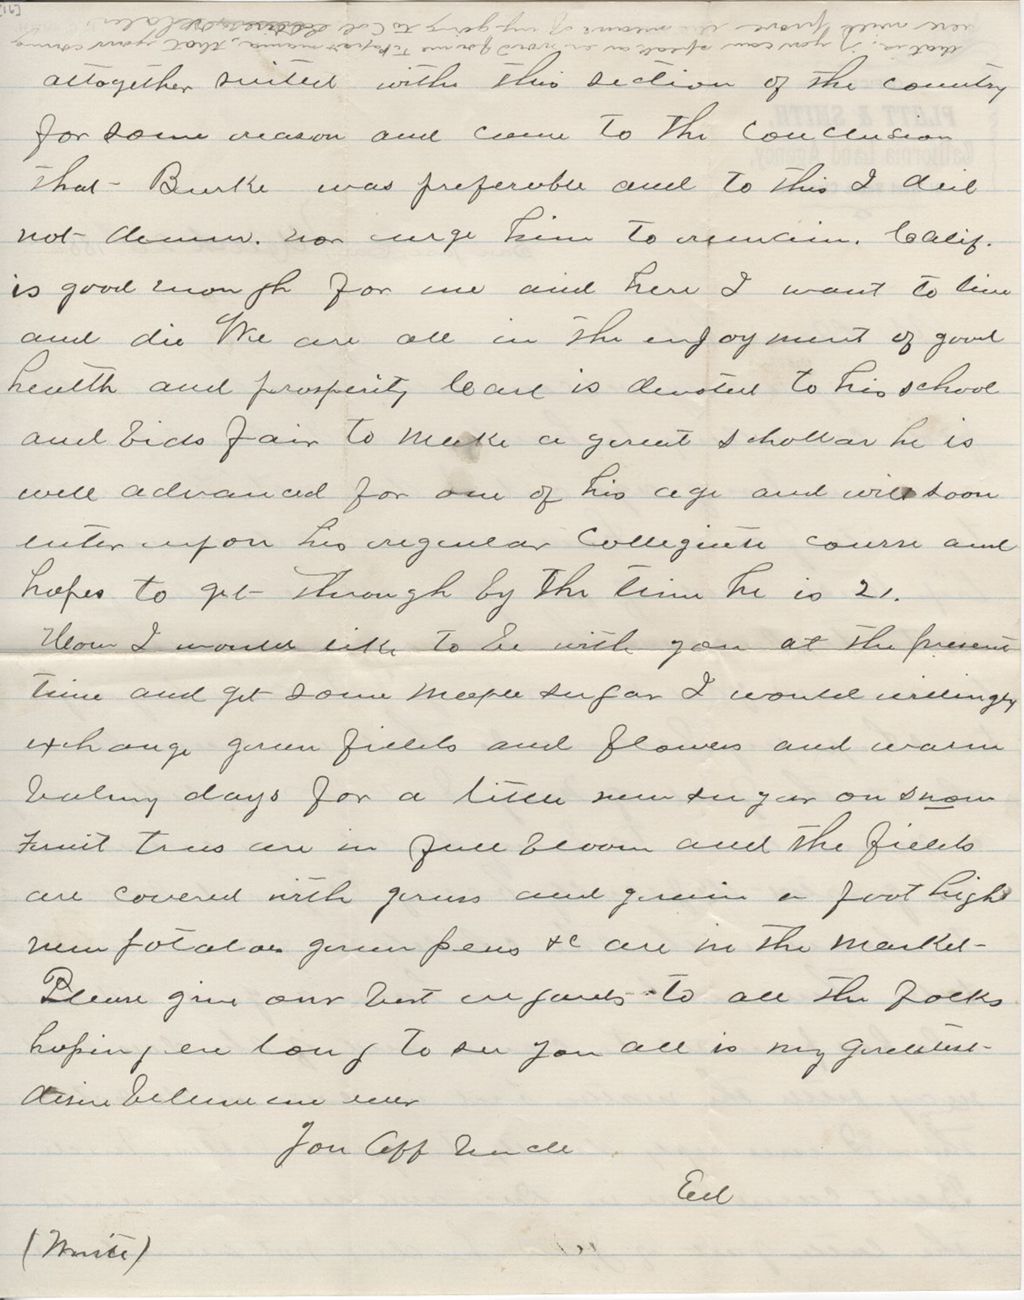 altogether suited with this section of the country
for some reason and came to the conclusion
that Burke was preferable and to this I did
not demur. nor urge him to remain. Calif.
is good enough for me and here I want to live
and die We are all in the enjoyment of good
health and prosperity Carl is devoted to his school
and bids fair to make a great schollar he is
well advanced for one of his age and will soon
enter upon his regular Collegiate course and
hopes to get through by the time he is 21.
How I would like to be with you at the present
time and get some maple sugar I would willingly
exchange green fields and flowers and warm
balmy days for a little new sugar on snow
Fruit trees are in full bloom and the fields
are covered with grass and grain a foot high
new potatoes green peas &c are in the market
Please give our best regards to all the folks
hoping ere long to see you all is my greatest
desire believe me ever
You Aff Uncle
Ed
(Write)
that is, if you can speak a word for me to Papa & mama, that your coming
here will prove the means of my going to Col later
PLATT & SMITH,
California Land Agency,